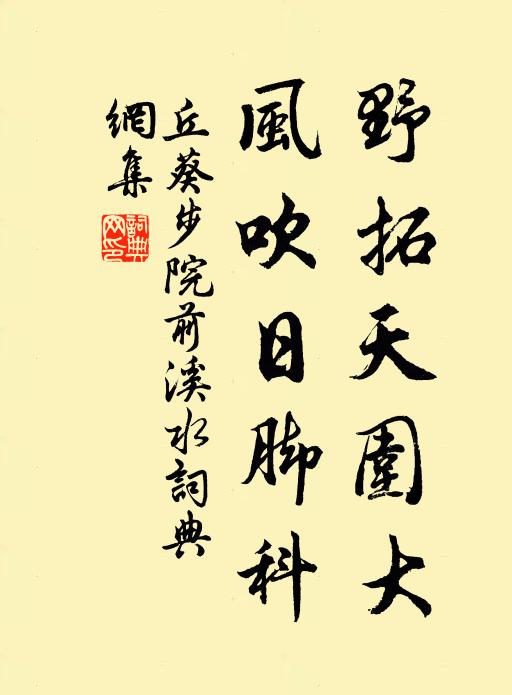 野拓天圍大
風吹日脚科
丘葵步院前溪水詞典
網集
詞典網印